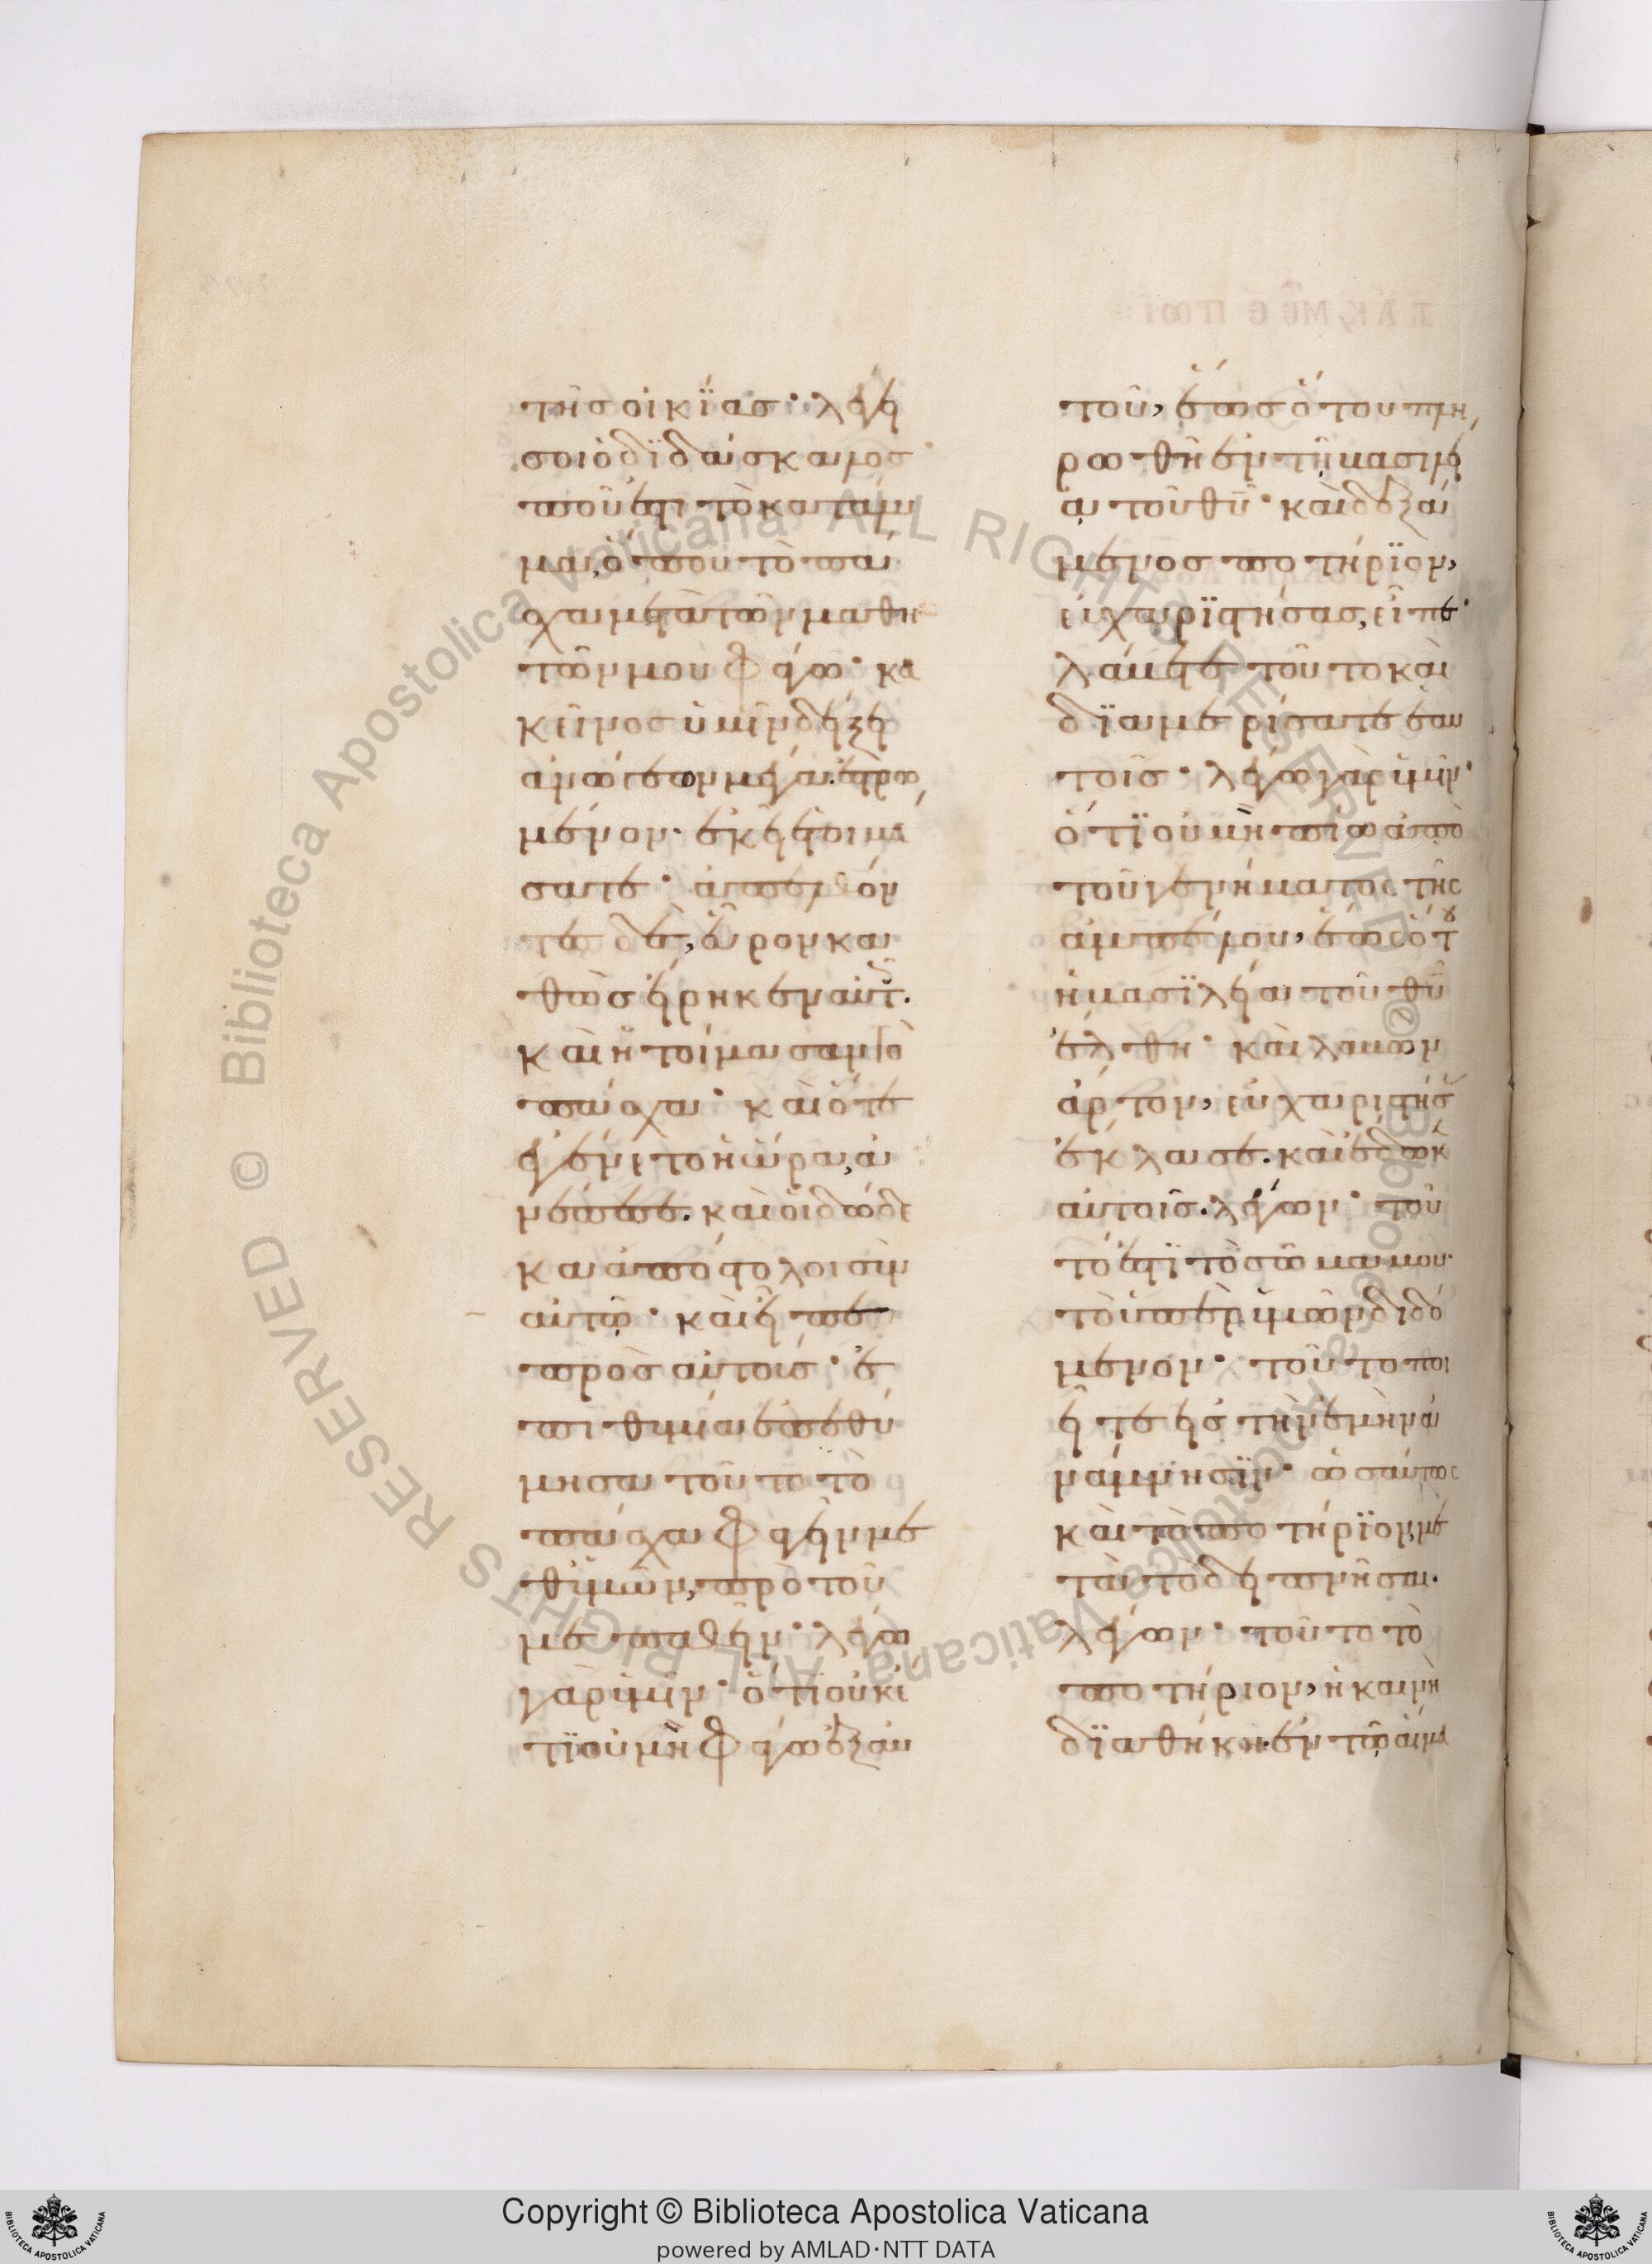 τῆς οἰκΐας· λέγει
σοι ὁ δϊδάσκαλος
ποῦ ἐστι τὸ κατάλυ
μα, ὅπου τὸ πάσ
χα μετὰ τῶν μαθη
τῶν μου φάγω· κα
κεῖνος ὑμῖν δείξει
ἀνώγεον μέγα ἐστρω
μένον· ἐκεῖ ἑτοιμά
σατε· ἀπελθόν
τες δὲ, εὗρον κα
θὼς εἴρηκεν αὐτοῖς.
καὶ ἡτοίμασαν τὸ
πάσχα· καὶ ὅτε
ἐγένετο ἡ ὥρα, ἀ
νέπεσε. καὶ οἱ δώδε
κα ἀπόστολοι σὺν
αὐτῷ· καὶ εἶπε
πρὸς αὐτούς· ἐ
πιθυμίαι ἐπεθύ
μησα τοῦτο τὸ
πάσχα φαγεῖν με
θ' ὑμῶν, πρὸ τοῦ
με παθεῖν· λέγω
γὰρ ὑμῖν· ὅτι οὐκέ
τϊ οὐ μὴ φάγω ἐξ αὐ
τοῦ, ἕως ὅτου πλη
ρωθῆ ἐν τῆ βασιλεί
α τοῦ θυ· καὶ δεξά
μενος ποτήρϊον,
εὐχαρϊστήσας, εἶπε·
λάβετε τοῦτο καὶ
δϊαμερίσατε ἑαυ
τοῖς· λέγω γὰρ ὑμῖν·
ὅτϊ οὐ μὴ πίω ἀπὸ
τοῦ γενήματος τῆς
ἀμπέλου, ἕως ὅτου
ἡ βασϊλεία τοῦ θυ
ἔλθη· καὶ λαβὼν
ἄρτον, εὐχαριστήσας
ἔκλασε. καὶ ἔδωκεν
αὐτοῖς. λέγων· τοῦ
τό ἐστϊ τὸ σῶμα μου.
τὸ ὑπὲρ ὑμῶν διδό
μενον· τοῦτο ποι
εῖτε εἰς τὴν ἐμὴν ἀ
νάμνησϊν· ὡσαύτως
καὶ τὸ ποτήρϊον, με
τὰ τὸ δειπνῆσαι.
λέγων· τοῦτο τὸ
ποτήριον, ἡ καινὴ
δϊαθήκη. ἐν τῷ αἵμα